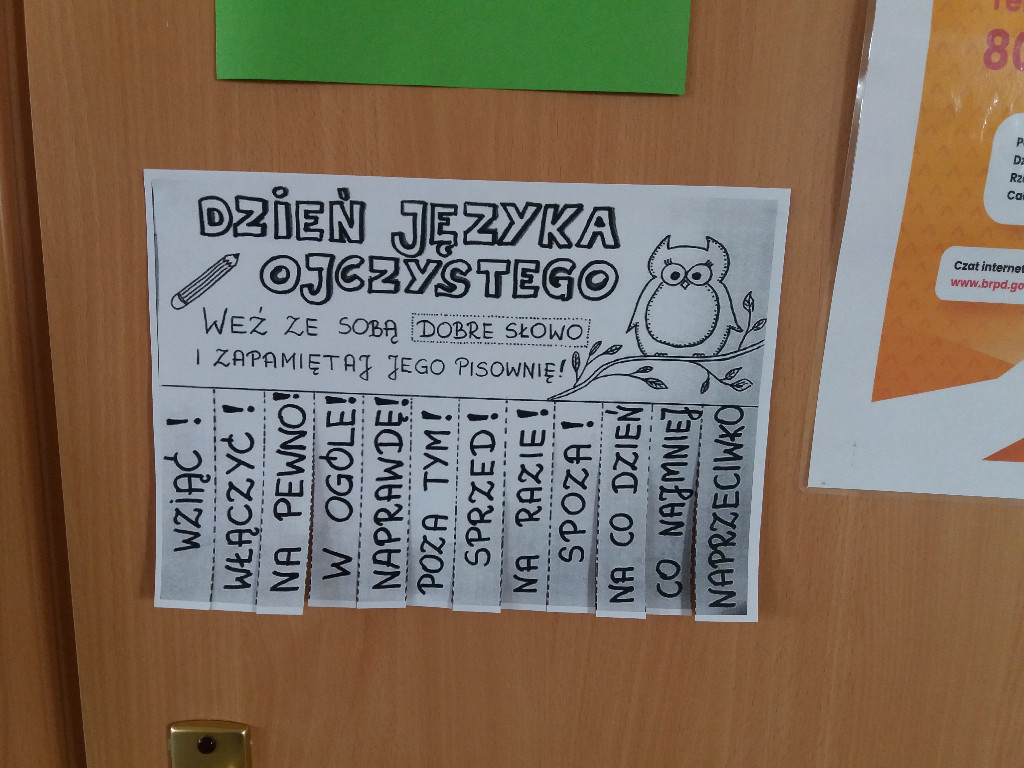 DZIEŃ JĘZYKA
OJCZYSTEGO
WEŹ ZE SOBĄ DOBRE SŁOWO
I ZAPAMIĘTAJ JEGO PISOWNIĘ!
WZIĄĆ!
WŁĄCZYĆ!
NA PEWNO!
W OGÓLE!
NAPRAWDĘ!
POZA TYM!
SPRZED!
NA RAZIE!
SPOZA!
NA CO DZIEŃ
CO NAJMNIEJ
NAPRZECIWKO
80
Czat interne
www.brpd.go